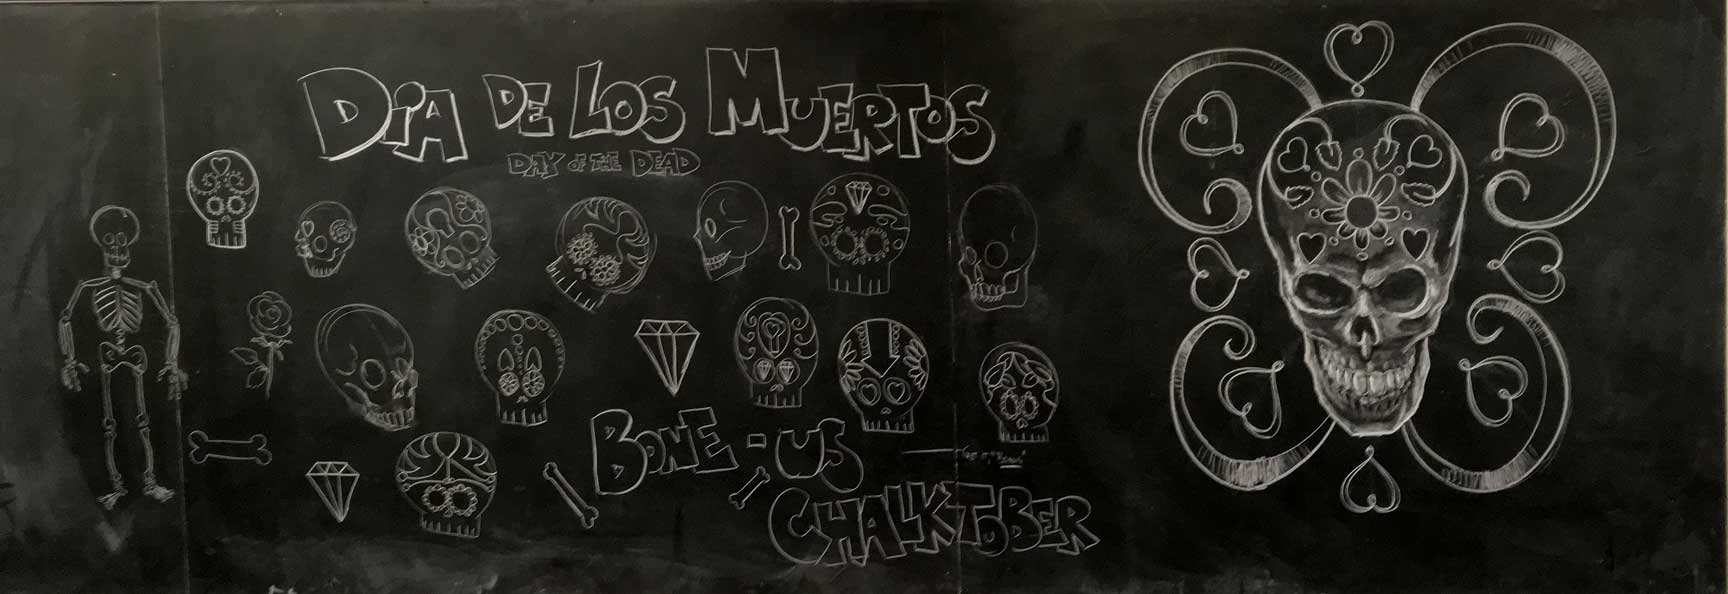 DÍA DE LOS MUERTOS
DAY OF THE DEAD
BONE-US
CHALKTOBER